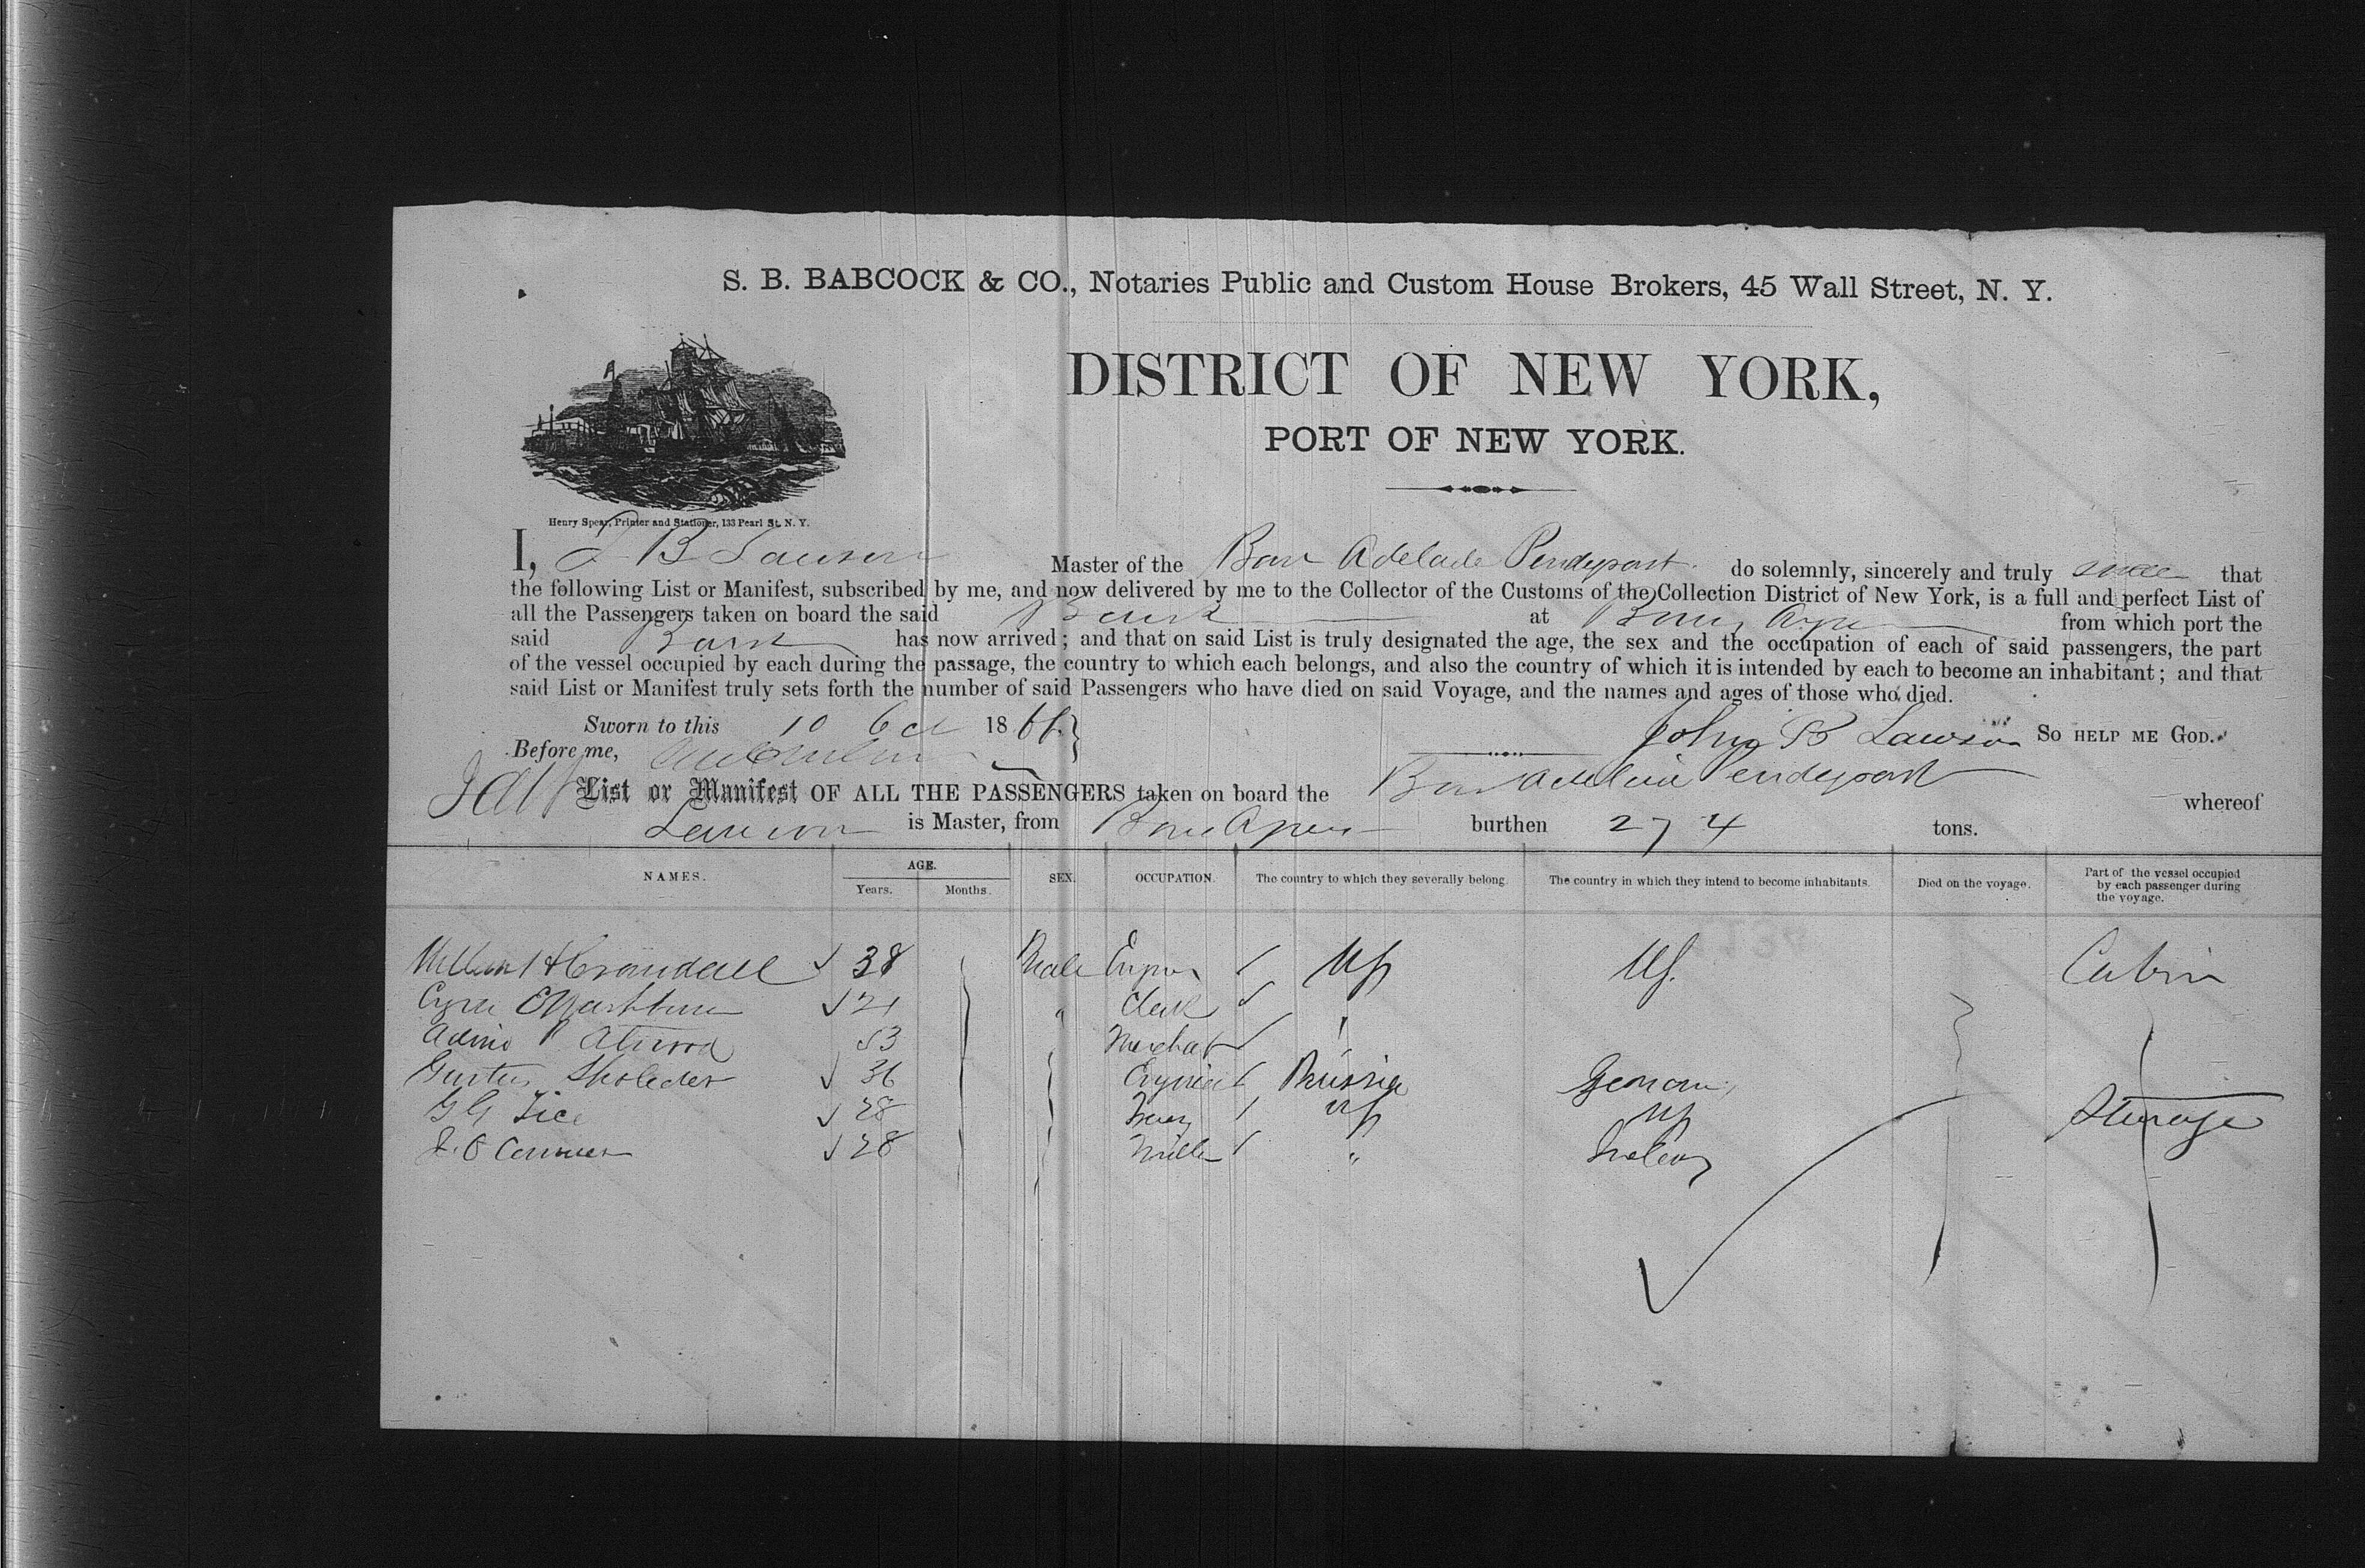 S. B. BABCOCK & CO., Notaries Public and Custom House Brokers, 45 Wall Street, N. Y.
DISTRICT OF NEW YORK,
PORT OF NEW YORK.
Henry Spear, Printer and Stationer, 133 Pearl St. N. Y.
I, J B Lawson Master of the Adelade Pendegrast do solemnly, sincerely and truly that
the following List or Manifest, subscribed by me, and now delivered by me to the Collector of the Customs of the Collection District of New York, is a full and perfect List of
all the Passengers taken on board the said Bark at from which port the
said Bark has now arrived; and that on said List is truly designated the age, the sex and the occupation of each of said passengers, the part
of the vessel occupied by each during the passage, the country to which each belongs, and also the country of which it is intended by each to become an inhabitant; and that
said List or Manifest truly sets forth the number of said Passengers who have died on said Voyage, and the names and ages of those who died.
Sworn to this 10 Oct 1866 John B Lawson SO HELP ME GOD.
Before me,
List or Manifest OF ALL THE PASSENGERS taken on board the whereof
Lawson is Master, from burthen 274 tons.
NAMES. AGE. Years. Months. SEX. OCCUPATION. The country to which they severally belong. The country in which they intend to become inhabitants. Died on the voyage. Part of the vessel occupied by each passenger during the voyage.
Crandall 38 Male US US. Cabin
21 " Clerk
Atwood 53
36 Prussia
G G Tice 28 US US Steerage
28 "